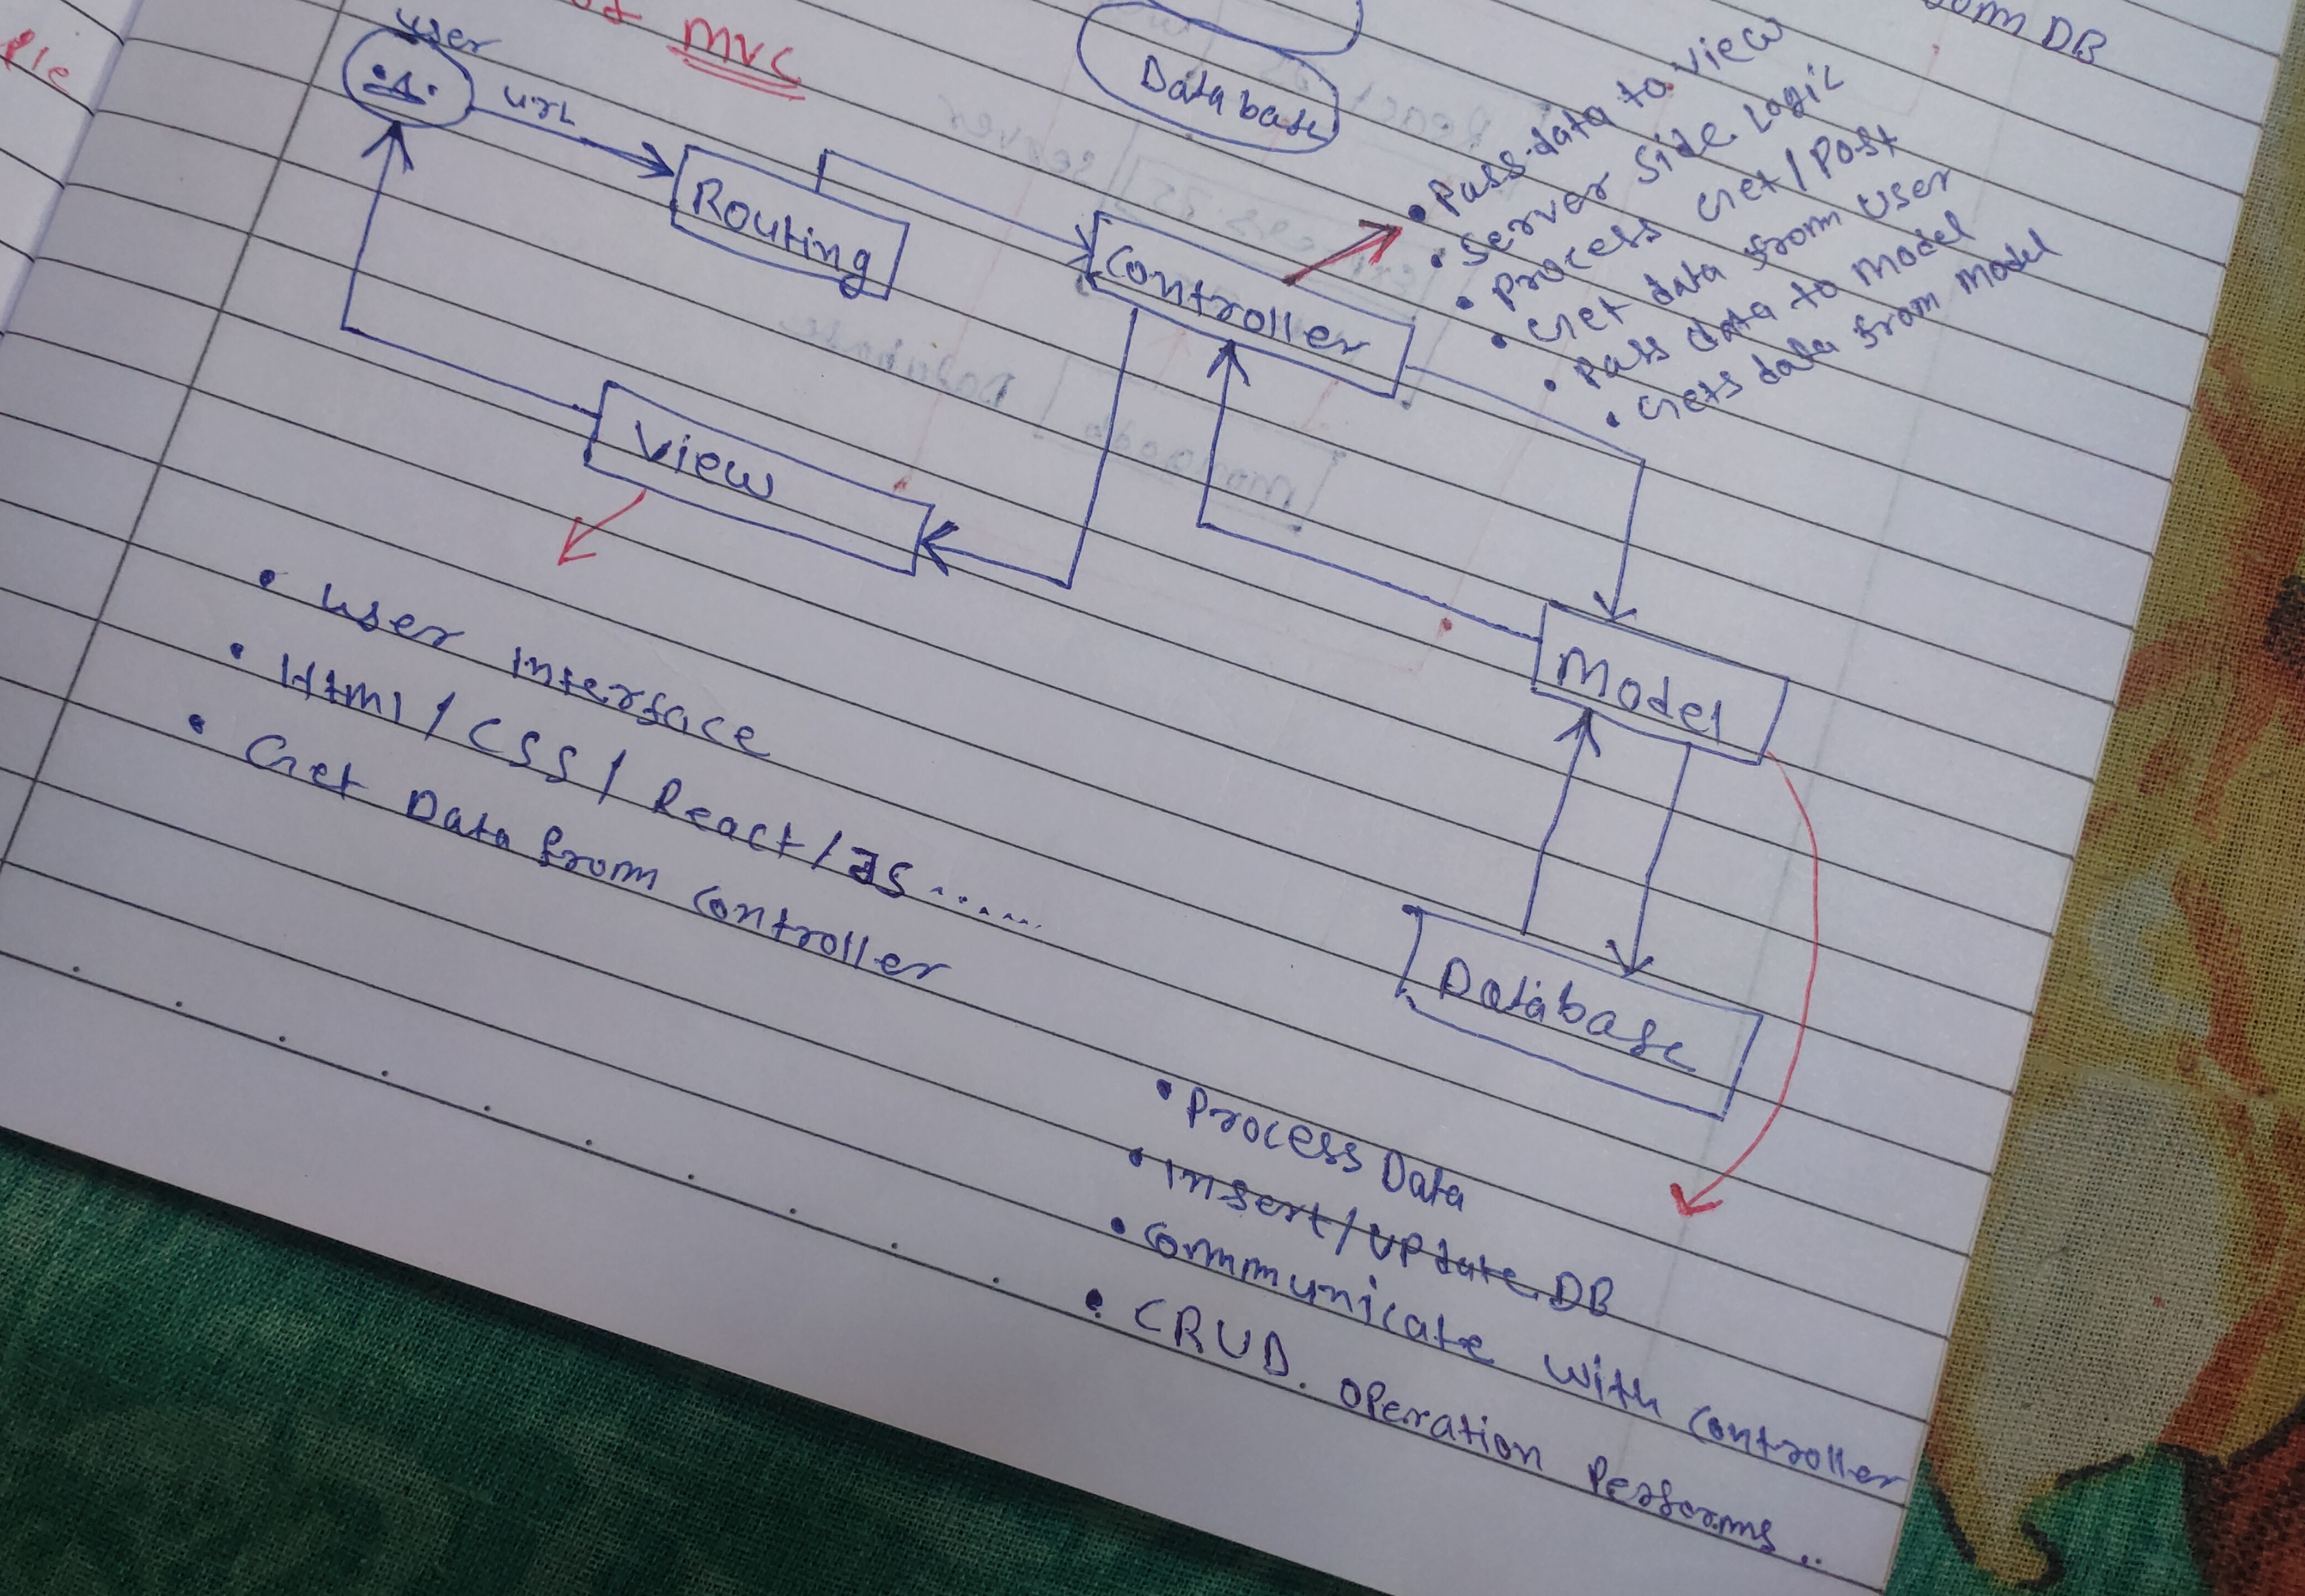 MVC
Ple
user
URL
Database
from DB
Routing
Controller
• Pass data to view
• Server Side Logic
• Process Get/Post
• Get data from User
• Pass data to Model
• Gets data from Model
View
• User interface
• Html / CSS / React / JS ......
• Get Data from Controller
Model
Database
• Process Data
• Insert/Update DB
• Communicate with Controller
• CRUD. Operation Performs ..